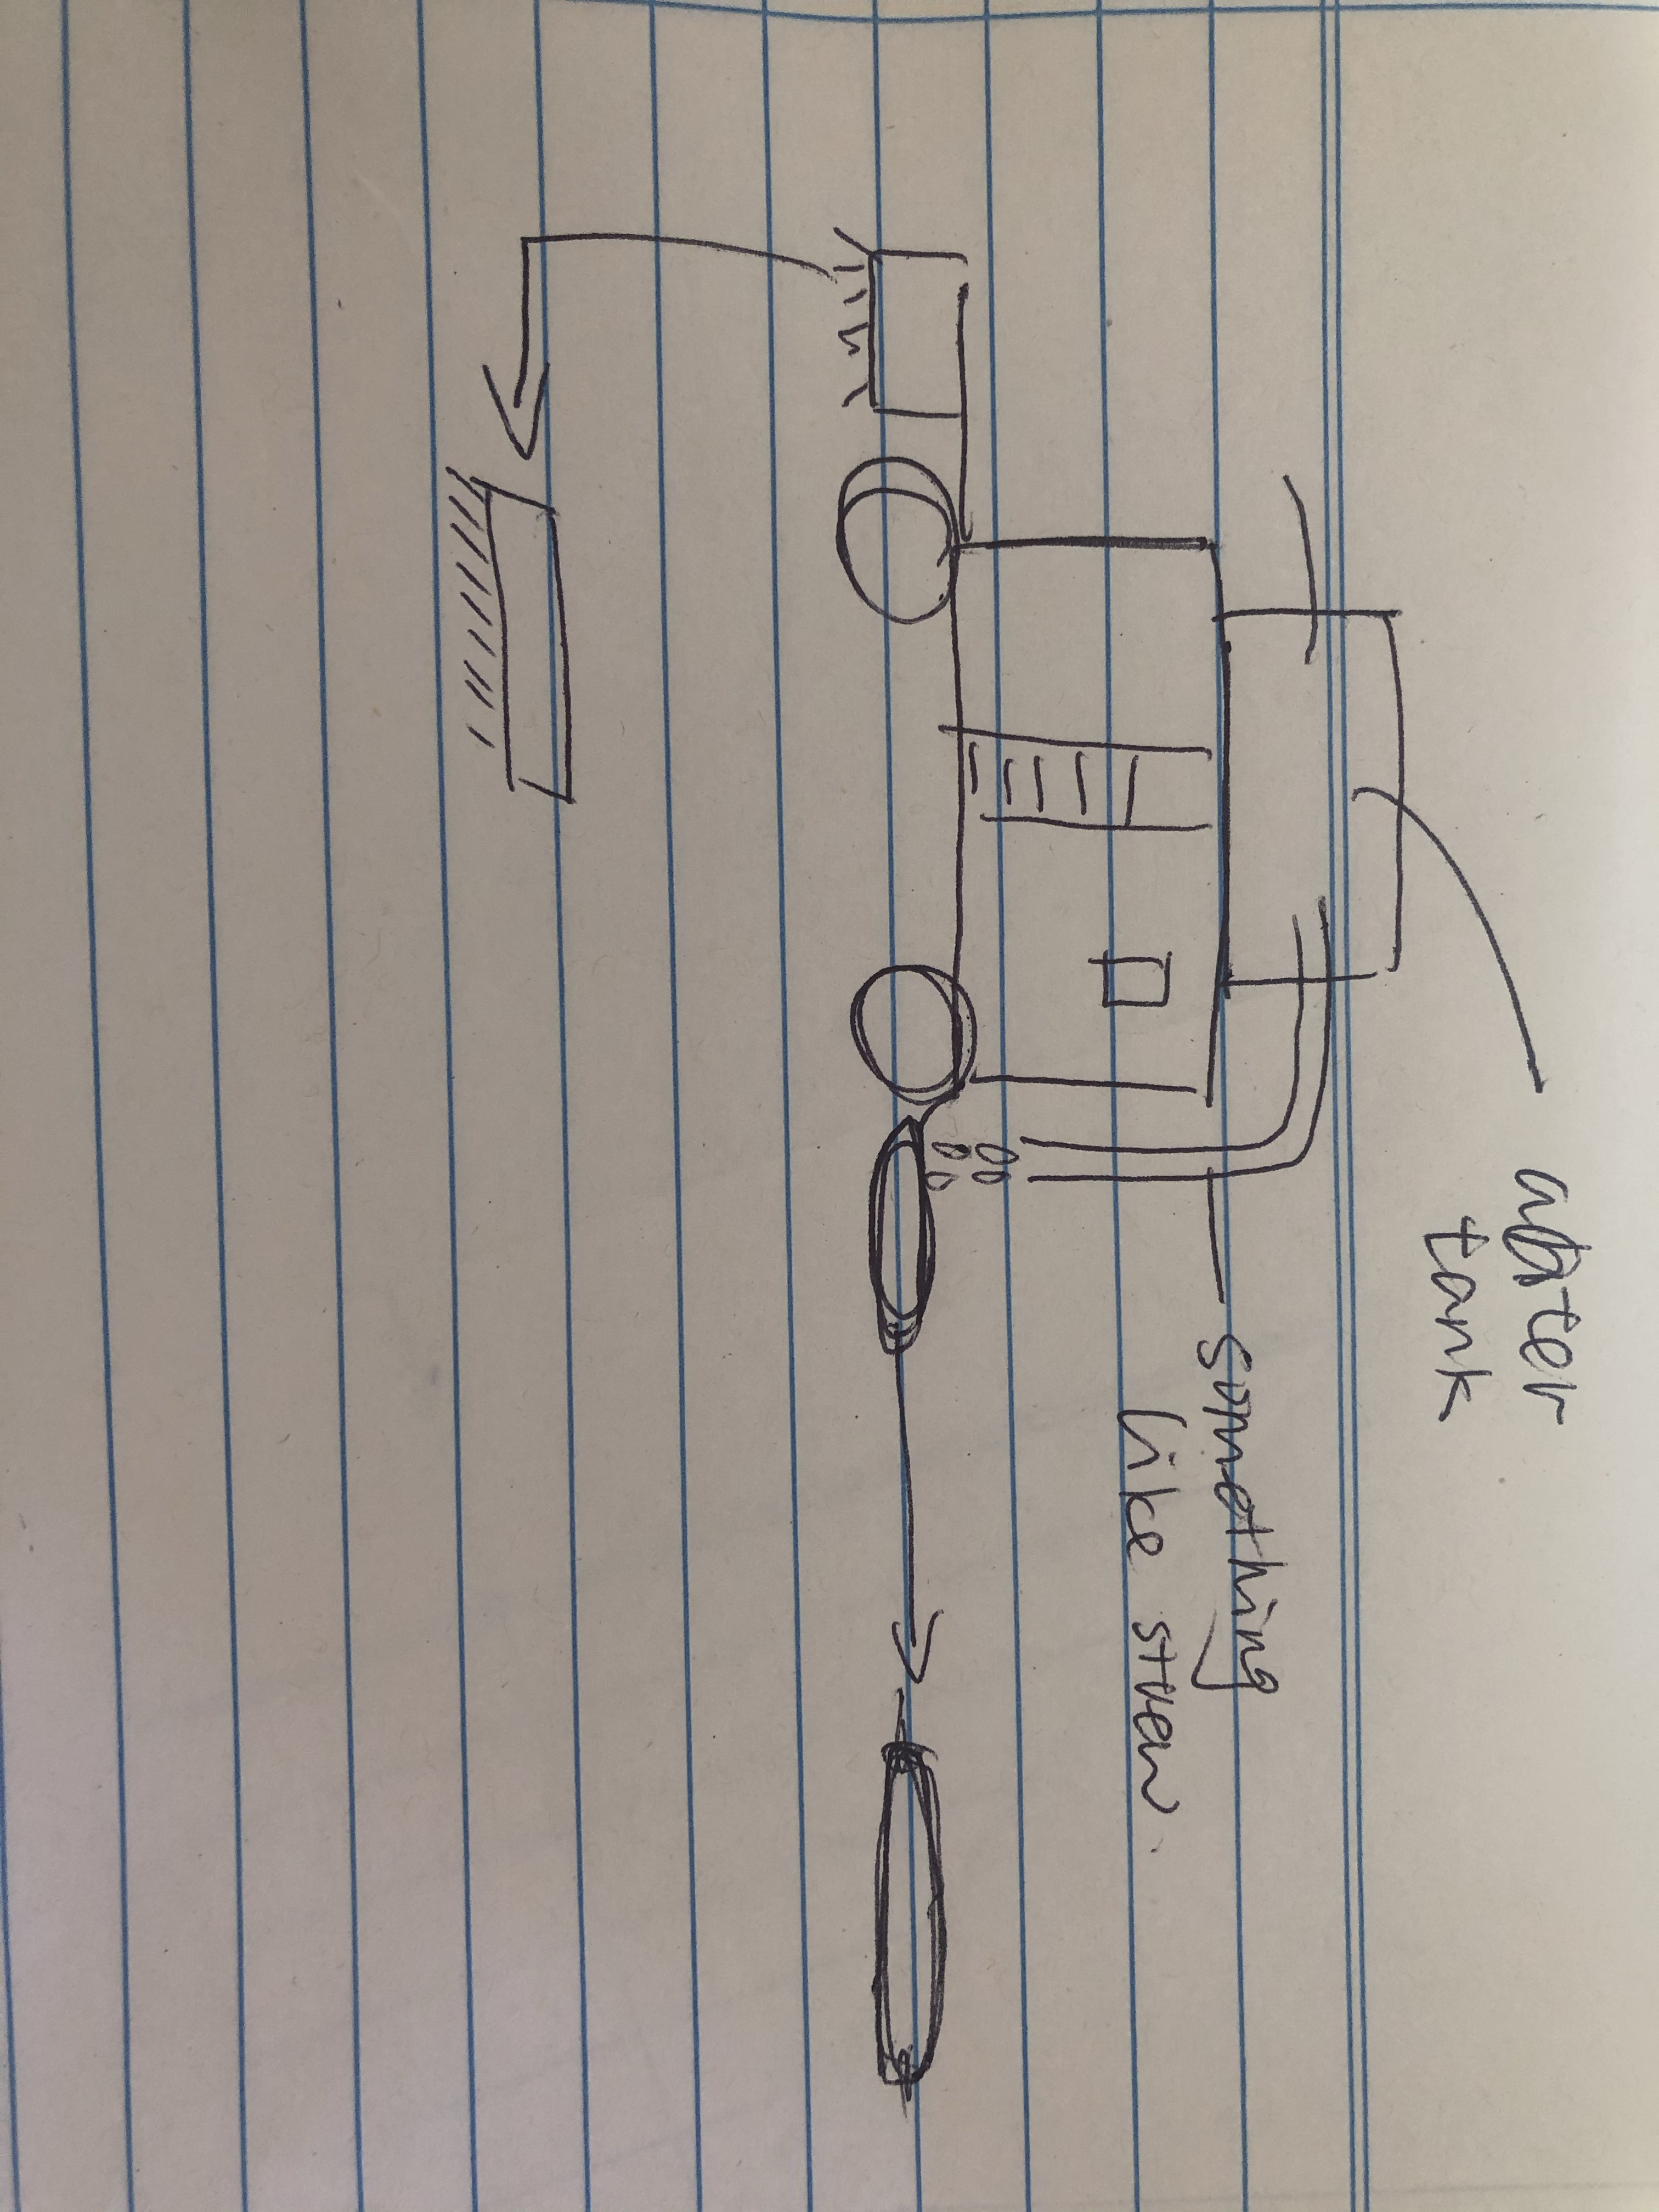 tank
something
like straw.